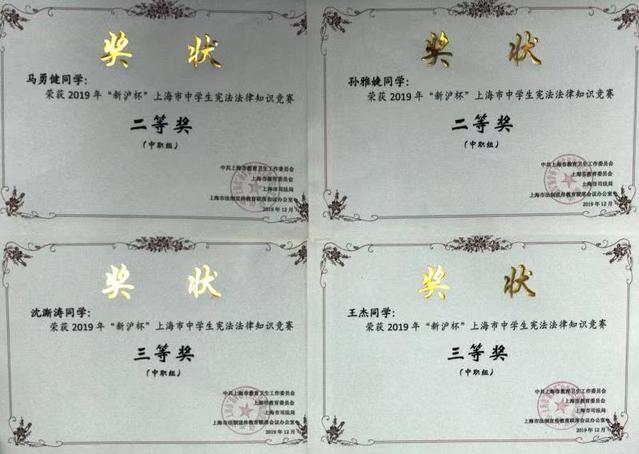 奖状
马勇健同学:
荣获2019年“新沪杯”上海市中学生宪法法律知识竞赛
二等奖
(中职组)
中共上海市教育卫生工作委员会
上海市教育委员会
上海市司法局
上海市法制宣传教育联席会议办公室
2019年12月
奖状
孙雅婕同学:
荣获2019年“新沪杯”上海市中学生宪法法律知识竞赛
二等奖
(中职组)
中共上海市教育卫生工作委员会
上海市教育委员会
上海市司法局
上海市法制宣传教育联席会议办公室
2019年12月
奖状
沈澌涛同学:
荣获2019年“新沪杯”上海市中学生宪法法律知识竞赛
三等奖
(中职组)
中共上海市教育卫生工作委员会
上海市教育委员会
上海市司法局
上海市法制宣传教育联席会议办公室
2019年12月
奖状
王杰同学:
荣获2019年“新沪杯”上海市中学生宪法法律知识竞赛
三等奖
(中职组)
中共上海市教育卫生工作委员会
上海市教育委员会
上海市司法局
上海市法制宣传教育联席会议办公室
2019年12月